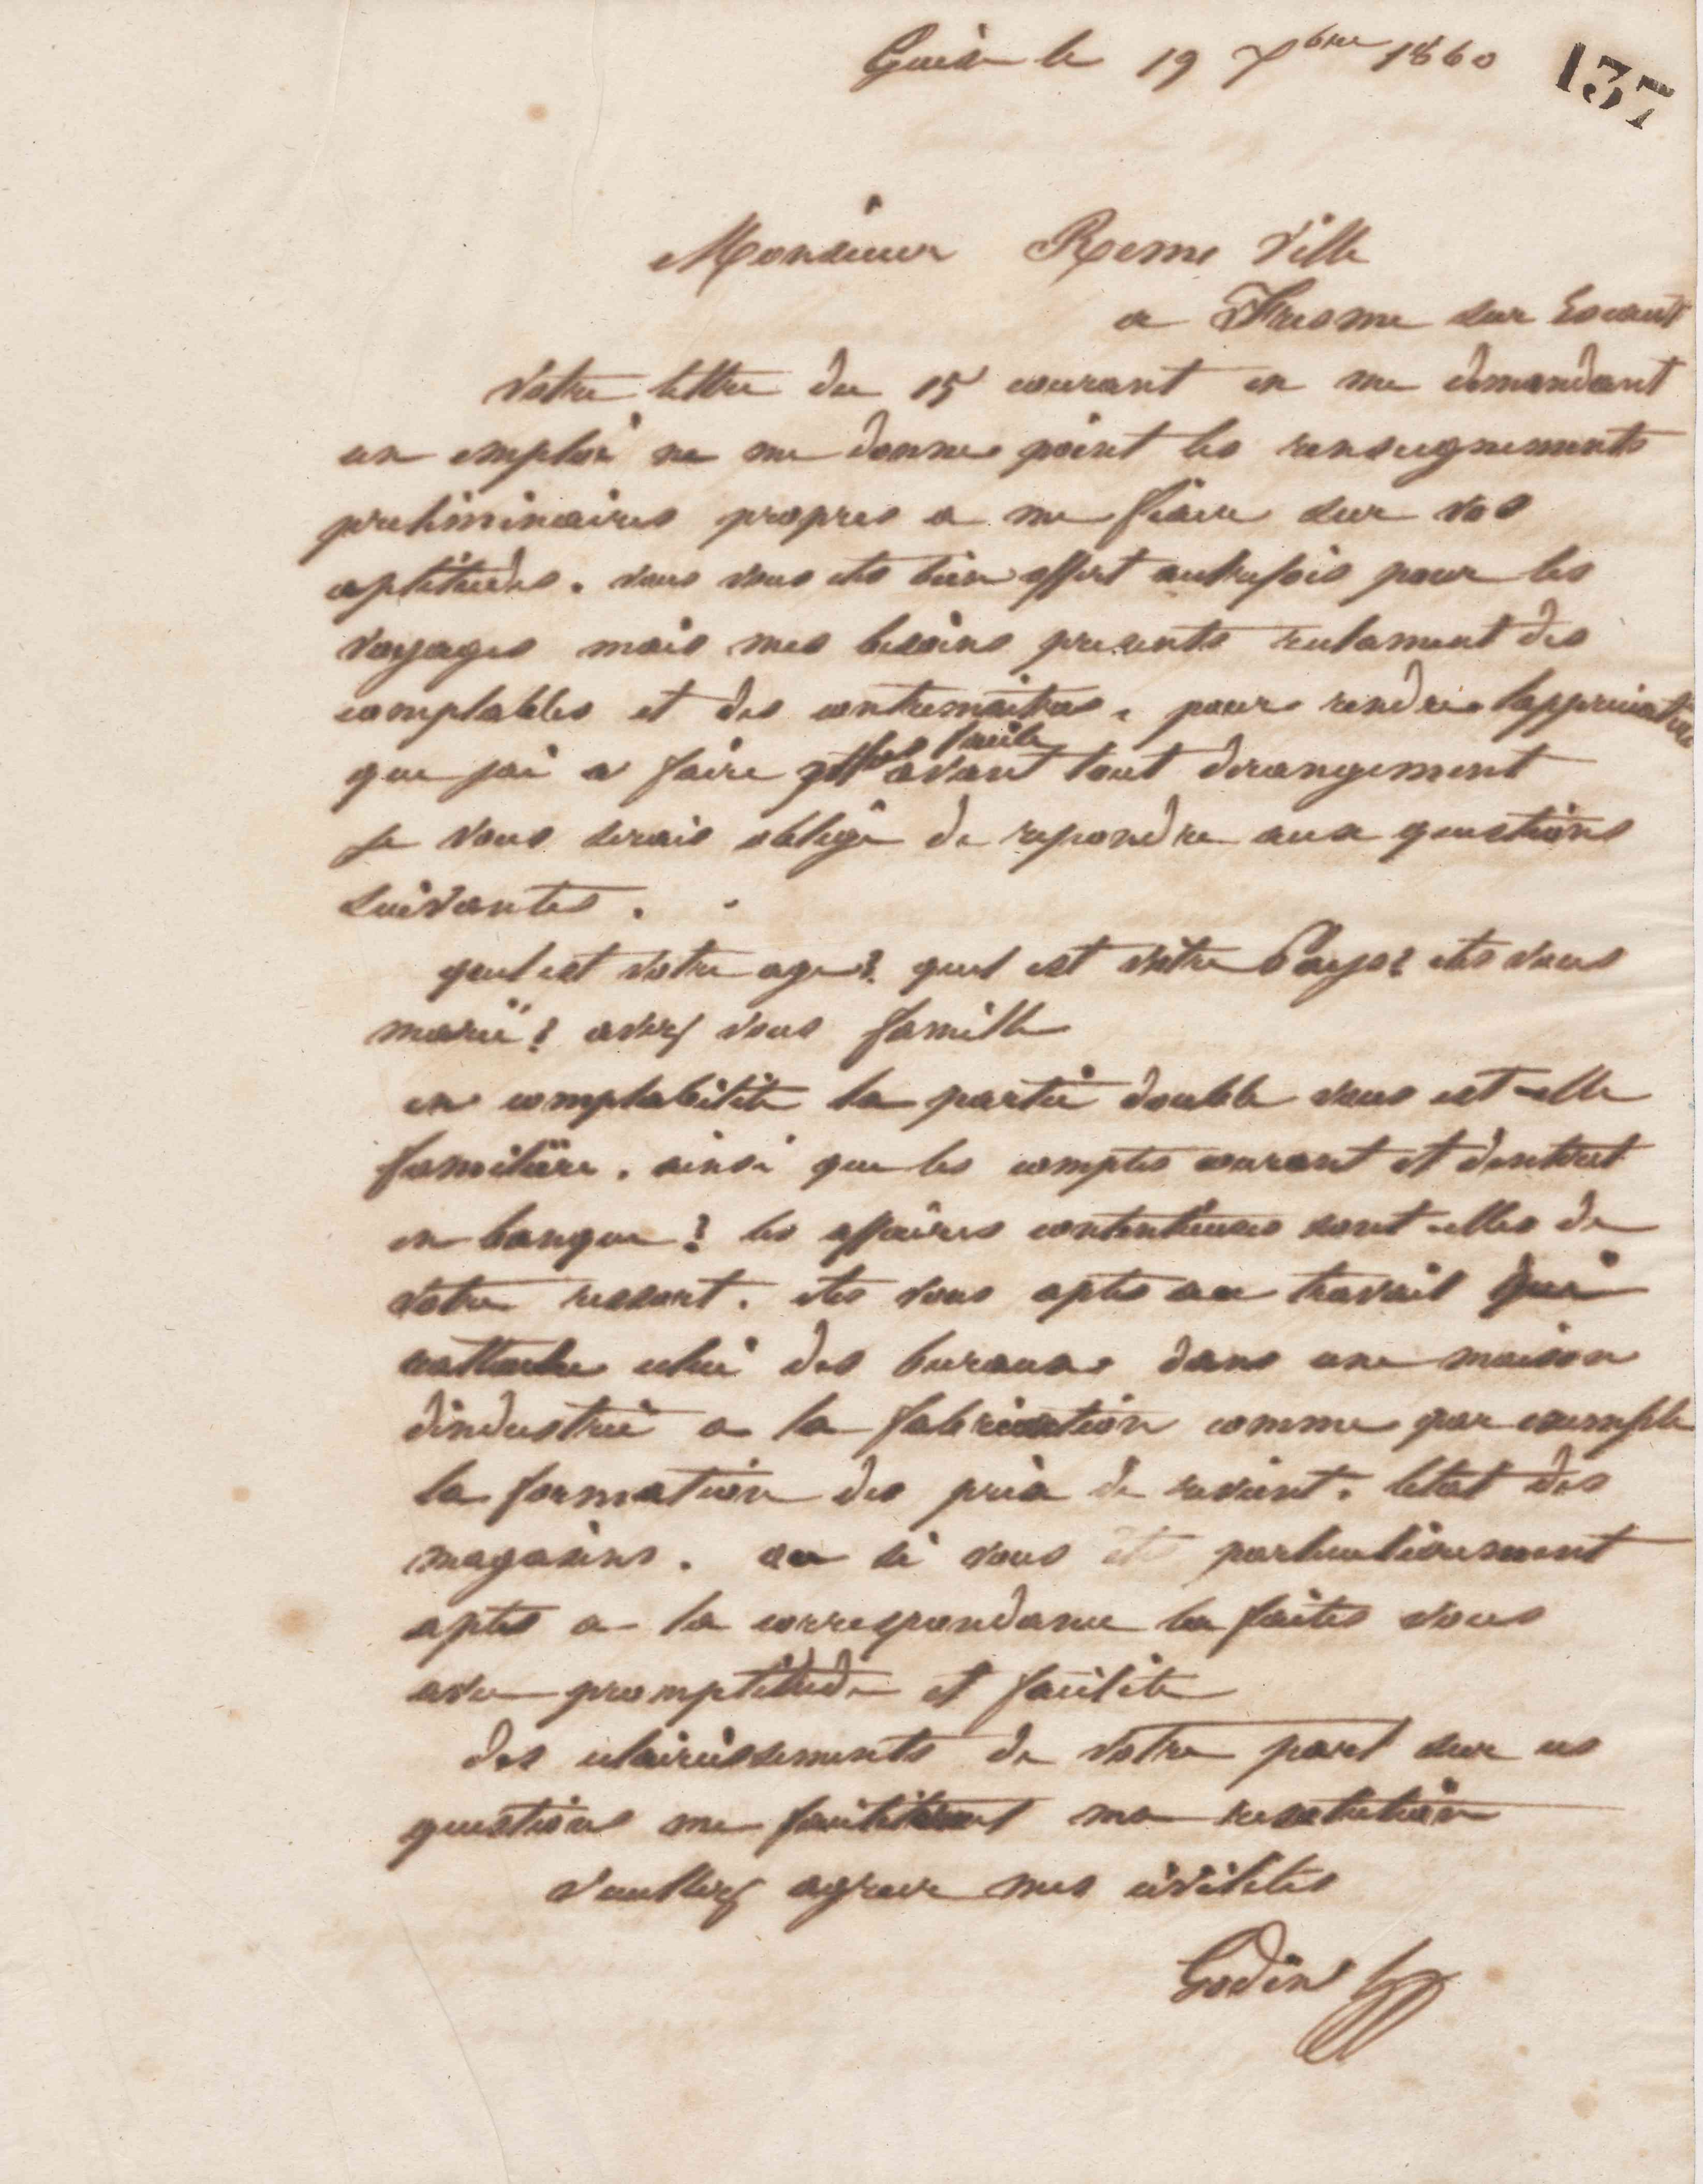 Guise le 19 Xbre 1860
137
Monsieur Reme Ville
a Fresme sur Escaut
Votre lettre du 15 courant en me demandant
un emploi ne me donne point les renseignements
preliminaires propres a me fixer sur vos
aptitudes. vous vous etes bien offert autrefois pour les
voyages mais mes besoins presents reclament des
comptables et des contremaitres. pour rendre lappreciation
que jai a faire plus facile avant tout derangement
je vous serais obligé de repondre aux questions
suivantes.
quel est votre age? quel est votre Pays? etes vous
marié? avez vous famille
en comptabilité la partie double vous est-elle
familiere. ainsi que les comptes courant et dinteret
en banque? les affaires contentieuses sont elles de
votre ressort. etes vous aptes au travail qui
rattache celui des bureaux dans une maison
dindustrie a la fabrication comme par exemple
la formation des prix de revient. letat des
magasins. ou si vous ete particulierement
aptes a la correspondance la faites vous
avec promptitude et facilité
des eclaircissements de votre part sur ces
questions me ma resolution
veuillez agreer mes civilités
Godin